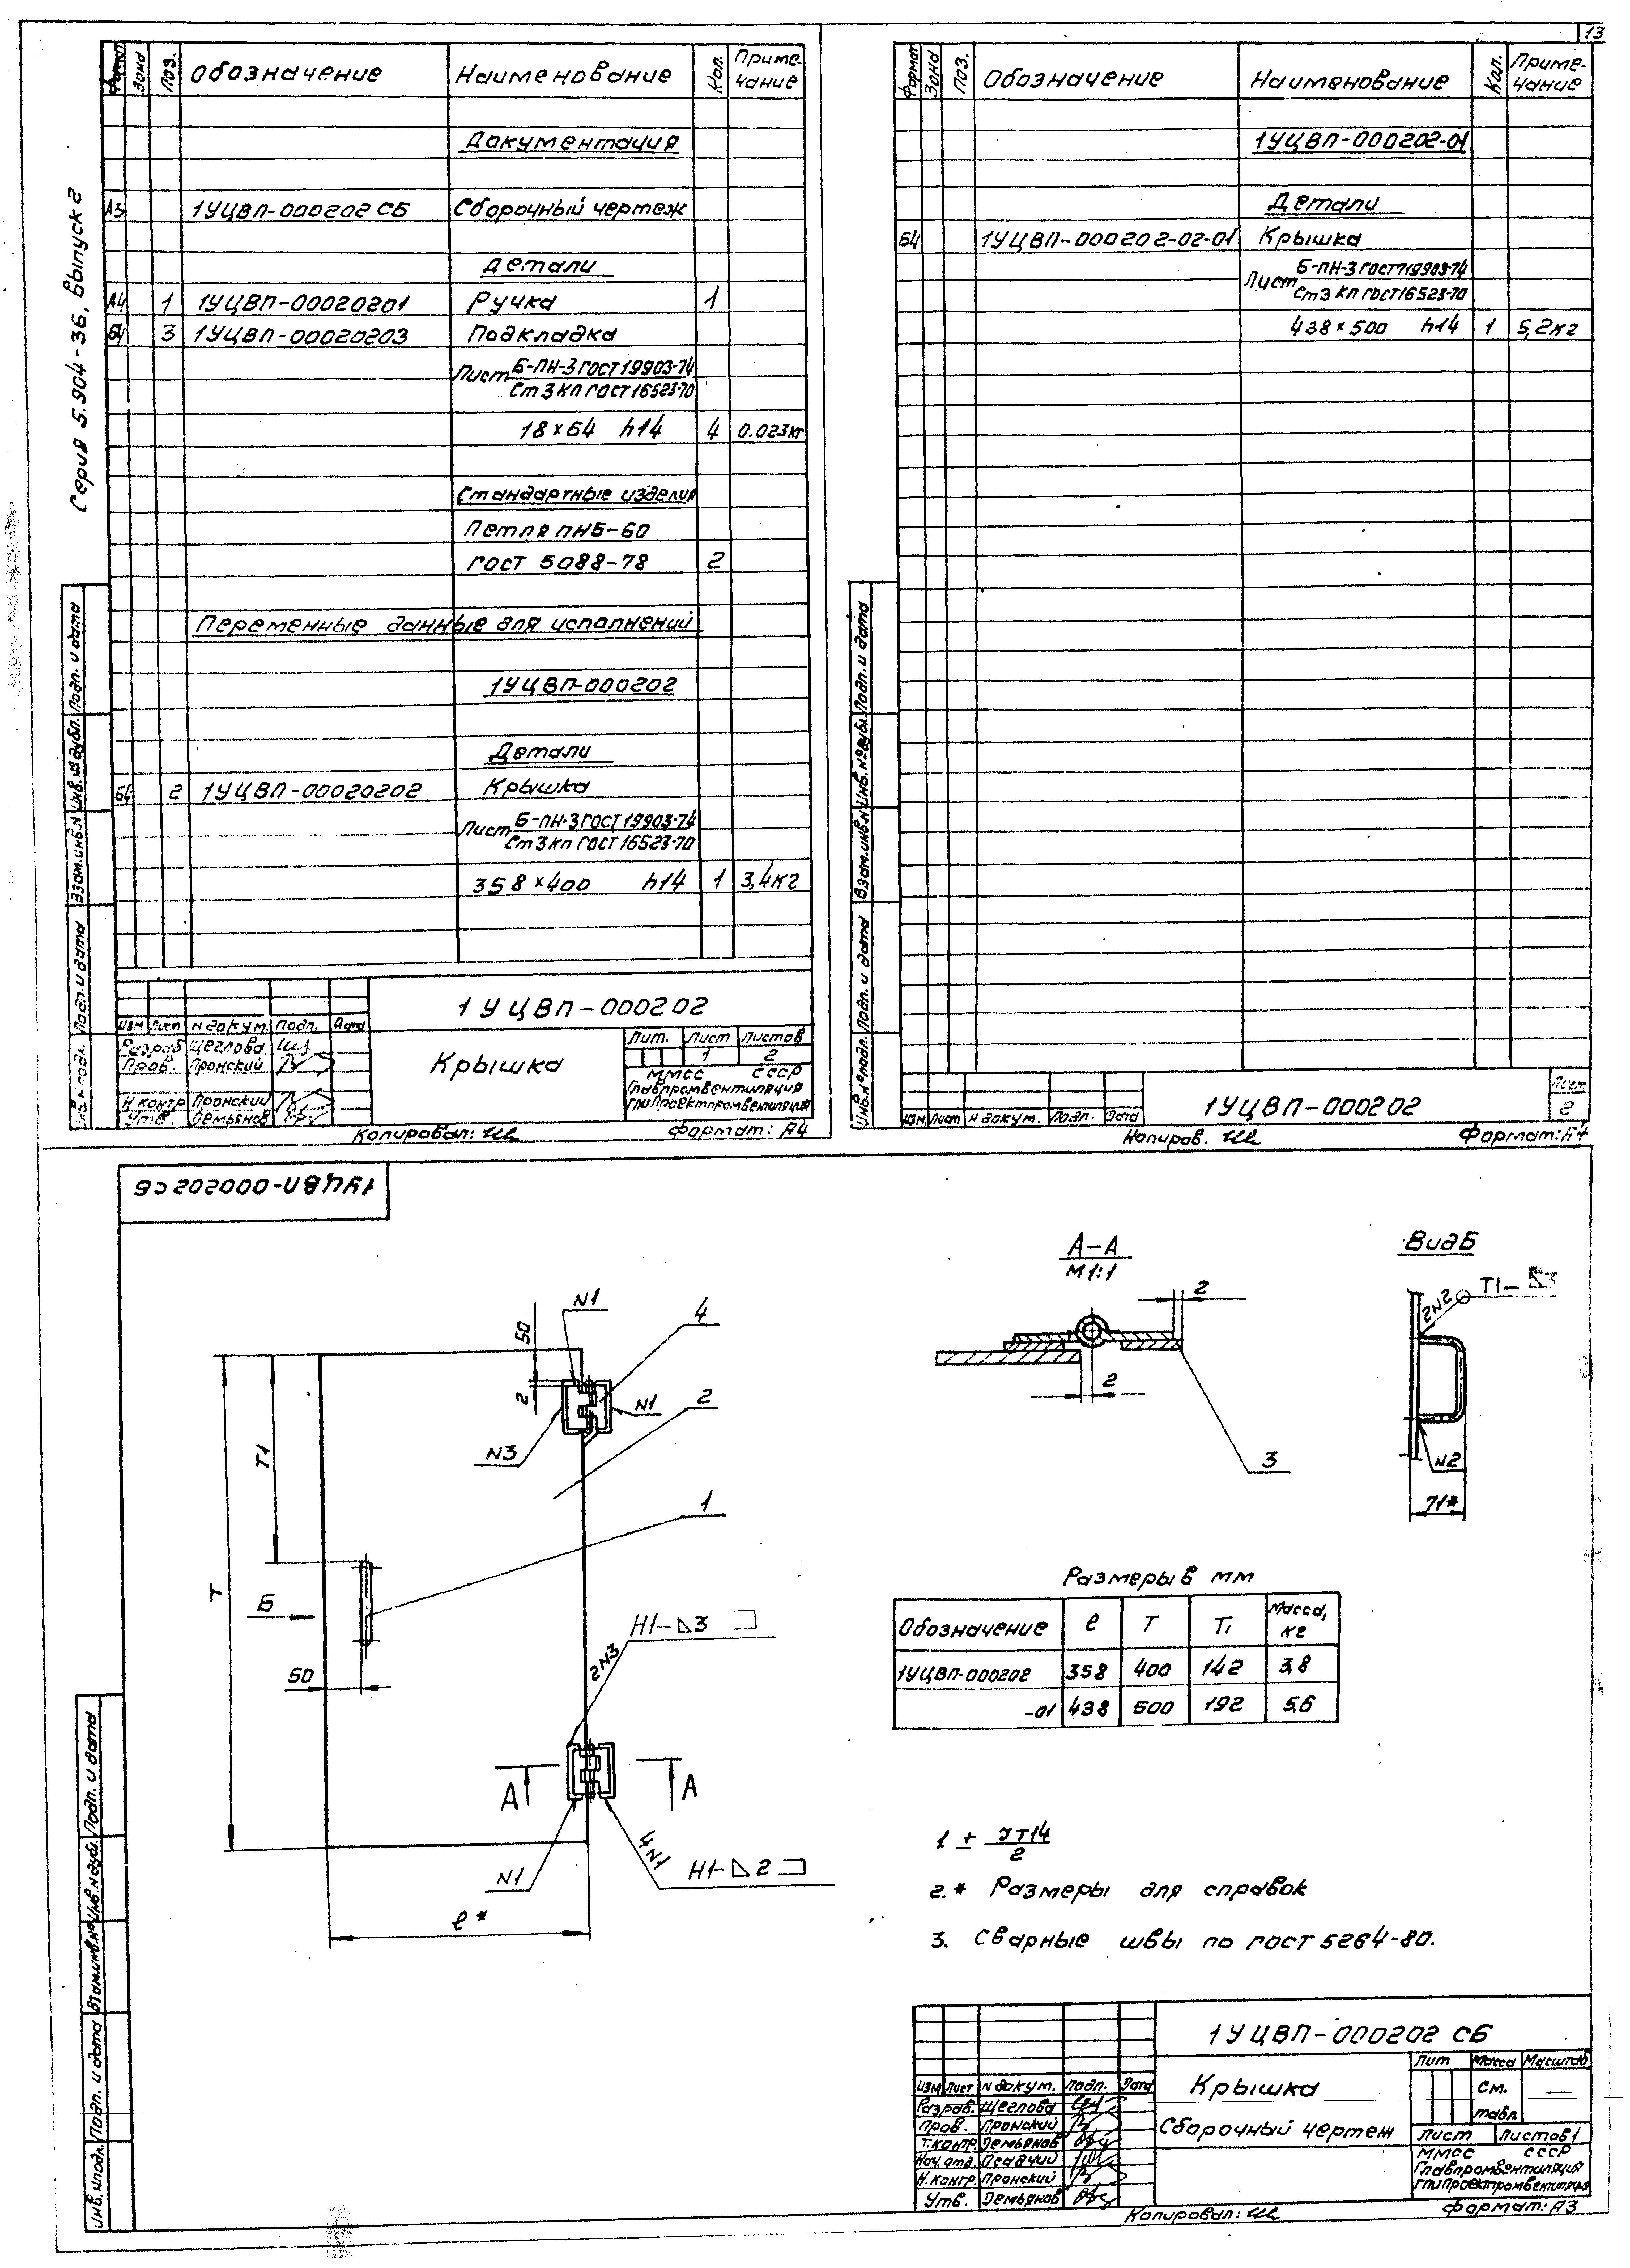 13
Серия 5.904-36, выпуск 2
Формат Зона Поз. Обозначение Наименование Кол. Приме-
чание
Документация
А3 1УЦВП-000202 СБ Сборочный чертеж
Детали
А4 1 1УЦВП-00020201 Ручка 1
Б4 3 1УЦВП-00020203 Подкладка
Лист Б-ПН-3 ГОСТ 19903-74
Ст 3 кп ГОСТ 16523-70
18×64 h14 4 0.023кг
Стандартные изделия
Петля ПН5-60
ГОСТ 5088-78 2
Переменные данные для исполнений
1УЦВП-000202
Детали
Б4 2 1УЦВП-00020202 Крышка
Лист Б-ПН-3 ГОСТ 19903-74
Ст 3 кп ГОСТ 16523-70
358×400 h14 1 3,4кг
Инв. № подл. Подп. и дата Взам. инв. № Инв. № дубл. Подп. и дата
1УЦВП-000202
Изм Лист N докум. Подп. Дата
Разраб Щеглова
Пров. Пронский
Н контр Пронский
Утв. Демьянов
Крышка
Лит. Лист Листов
1 2
ММСС СССР
Главпромвентиляция
ГПИ Проектпромвентиляция
Копировал:
Формат: А4
Формат Зона Поз. Обозначение Наименование Кол. Приме-
чание
1УЦВП-000202-01
Детали
Б4 1УЦВП-000202-02-01 Крышка
Лист Б-ПН-3 ГОСТ 19903-74
Ст 3 кп ГОСТ 16523-70
438×500 h14 1 5,2кг
Инв. № подл. Подп. и дата Взам. инв. № Инв. № дубл. Подп. и дата
Изм Лист N докум. Подп. Дата
1УЦВП-000202
Лист
2
Копиров.
Формат: А4
1УЦВП-000202 СБ
А-А
М1:1
Вид Б
2
2
3
2N2
Т1-⊿3
N2
71*
N1
4
50
2
N1
2
N3
Т1
1
Т
Б
50
Н1-⊿3
2N3
А
А
N1
4N1
Н1-⊿2
ℓ*
Размеры в мм
Обозначение ℓ Т Т1 Масса,
кг
1УЦВП-000202 358 400 142 3,8
-01 438 500 192 5,6
1 ± JT14
2
2.* Размеры для справок
3. Сварные швы по ГОСТ 5264-80.
Инв. № подл. Подп. и дата Взам. инв. № Инв. № дубл. Подп. и дата
1УЦВП-000202 СБ
Изм Лист N докум. Подп. Дата
Разраб. Щеглова
Пров. Пронский
Т. контр. Демьянов
Нач. отд. Осадчий
Н. контр. Пронский
Утв. Демьянов
Крышка
Сборочный чертеж
Лит Масса Масштаб
См.
табл.
—
Лист Листов 1
ММСС СССР
Главпромвентиляция
ГПИ Проектпромвентиляция
Копировал:
Формат: А3